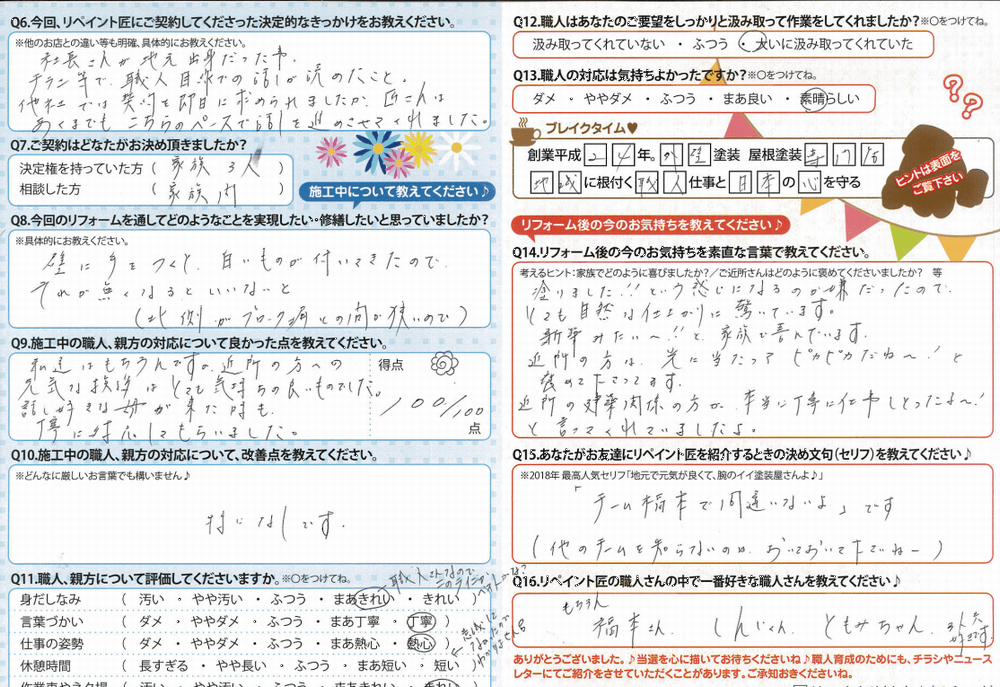 Q6.今回、リペイント匠にご契約してくださった決定的なきっかけをお教えください。
※他のお店との違い等も明確、具体的にお教えください。
社長さんが地元出身だった事。
チラシ等で、職人目線での話が読めたこと。
他社では契約を即日に求められましたが、匠さんは
あくまでもこちらのペースで話を進めさせてくれました。
Q7.ご契約はどなたがお決め頂きましたか?
決定権を持っていた方 ( 家族 3人 )
相談した方 ( 家族間 )
施工中について教えてください♪
Q8.今回のリフォームを通してどのようなことを実現したい・修繕したいと思っていましたか?
※具体的にお教えください。
壁に手をつくと、白いものが付いてきたので、
それが無くなるといいないと
(北側がブロック塀との間が狭いので)
Q9.施工中の職人、親方の対応について良かった点を教えてください。
私達はもちろんですが、近所の方への
元気な挨拶はとても気持ちの良いものでした。
話し好きな母が来た時も、
丁寧に対応してもらいました。
得点
100/100
点
Q10.施工中の職人、親方の対応について、改善点を教えてください。
※どんなに厳しいお言葉でも構いません♪
特になしです。
Q11.職人、親方について評価してくださいますか。※○をつけてね。
職人さんなので
身だしなみ ( 汚い ・ やや汚い ・ ふつう ・ まあきれい ・ きれい )
言葉づかい ( ダメ ・ ややダメ ・ ふつう ・ まあ丁寧 ・ 丁寧 )
仕事の姿勢 ( ダメ ・ ややダメ ・ ふつう ・ まあ熱心 ・ 熱心 )
休憩時間 ( 長すぎる ・ やや長い ・ ふつう ・ まあ短い ・ 短い )
Q12.職人はあなたのご要望をしっかりと汲み取って作業をしてくれましたか?※○をつけてね。
汲み取ってくれていない ・ ふつう ・ 大いに汲み取ってくれていた
Q13.職人の対応は気持ちよかったですか?※○をつけてね。
ダメ ・ ややダメ ・ ふつう ・ まあ良い ・ 素晴らしい
ブレイクタイム♥
創業平成24年。外壁塗装 屋根塗装専門店
地域に根付く職人仕事と日本の心を守る
ヒントは表面を
ご覧下さい
リフォーム後の今のお気持ちを教えてください♪
Q14.リフォーム後の今のお気持ちを素直な言葉で教えてください。
考えるヒント:家族でどのように喜びましたか?/ご近所さんはどのように褒めてくださいましたか? 等
塗りました!!という感じになるのが嫌だったので、
とても自然な仕上がりに驚いています。
新築みたい〜!!と、家族で喜んでいます。
近所の方は、光に当たってピカピカだね〜!と
褒めて下さってます。
近所の建築関係の方が、本当に丁寧に仕事しとったよ〜!
と言ってくれていましたよ。
Q15.あなたがお友達にリペイント匠を紹介するときの決め文句(セリフ)を教えてください♪
※2018年 最高人気セリフ「地元で元気が良くて、腕のイイ塗装屋さんよ♪」
「チーム福本で間違いないよ」です
(他のチームを知らないのは、おいておいて下さいねー)
Q16.リペイント匠の職人さんの中で一番好きな職人さんを教えてください♪
もちろん
福本さん、しんじくん、ともみちゃん、
ありがとうございました。♪当選を心に描いてお待ちくださいね♪職人育成のためにも、チラシやニュース
レターにてご紹介をさせていただくことがあります。ご承知おきくださいね。